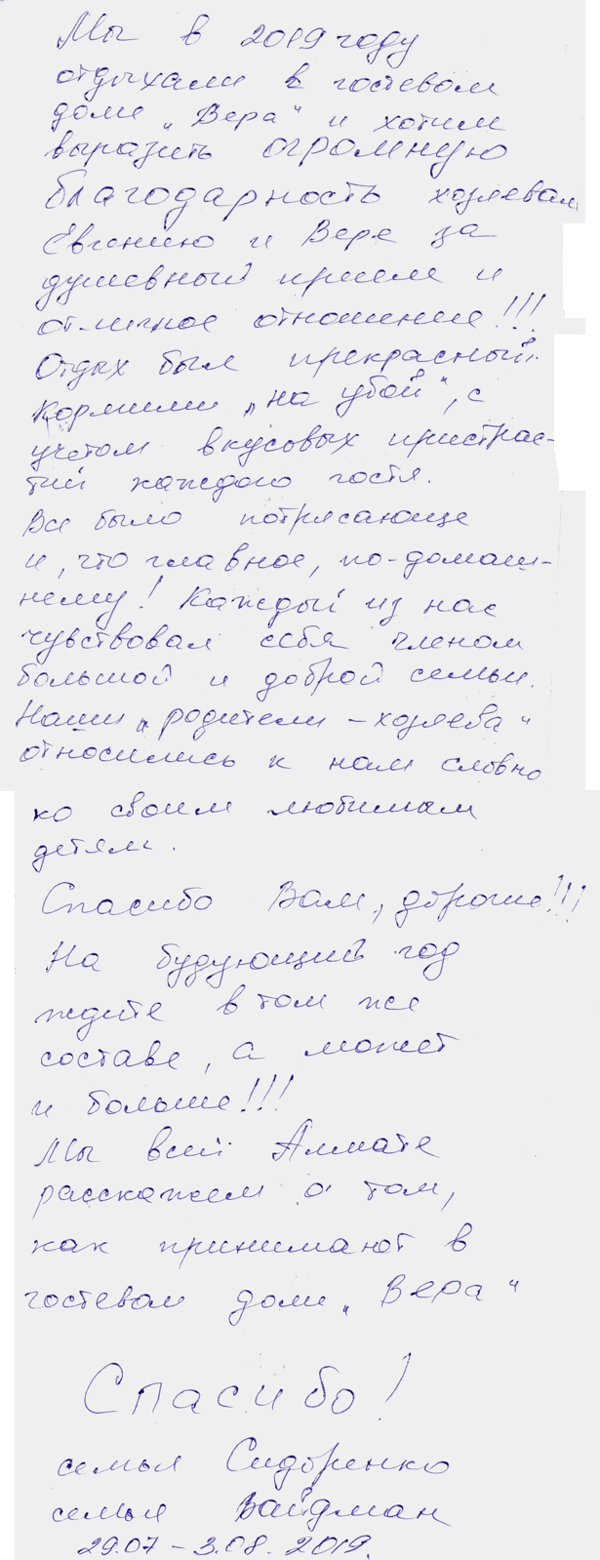 Мы в 2019 году
отдыхали в гостевом
доме „Вера" и хотим
выразить огромную
благодарность хозяевам
Евгению и Вере за
душевный прием и
отличное отношение!!!
Отдых был прекрасный.
Кормили „на убой", с
учетом вкусовых пристрас-
тий каждого гостя.
Все было потрясающе
и, что главное, по-домаш-
нему! Каждый из нас
чувствовал себя членом
большой и доброй семьи.
Наши „родители - хозяева"
относились к нам словно
ко своим любимым
детям.
Спасибо Вам, дорогие!!!
На будующий год
ждите в том же
составе, а может
и больше!!!
Мы всей Алмате
расскажем о том,
как принимают в
гостевом доме „Вера"
Спасибо!
семья Сидоренко
семья Вайдман
29.07 - 3.08. 2019.